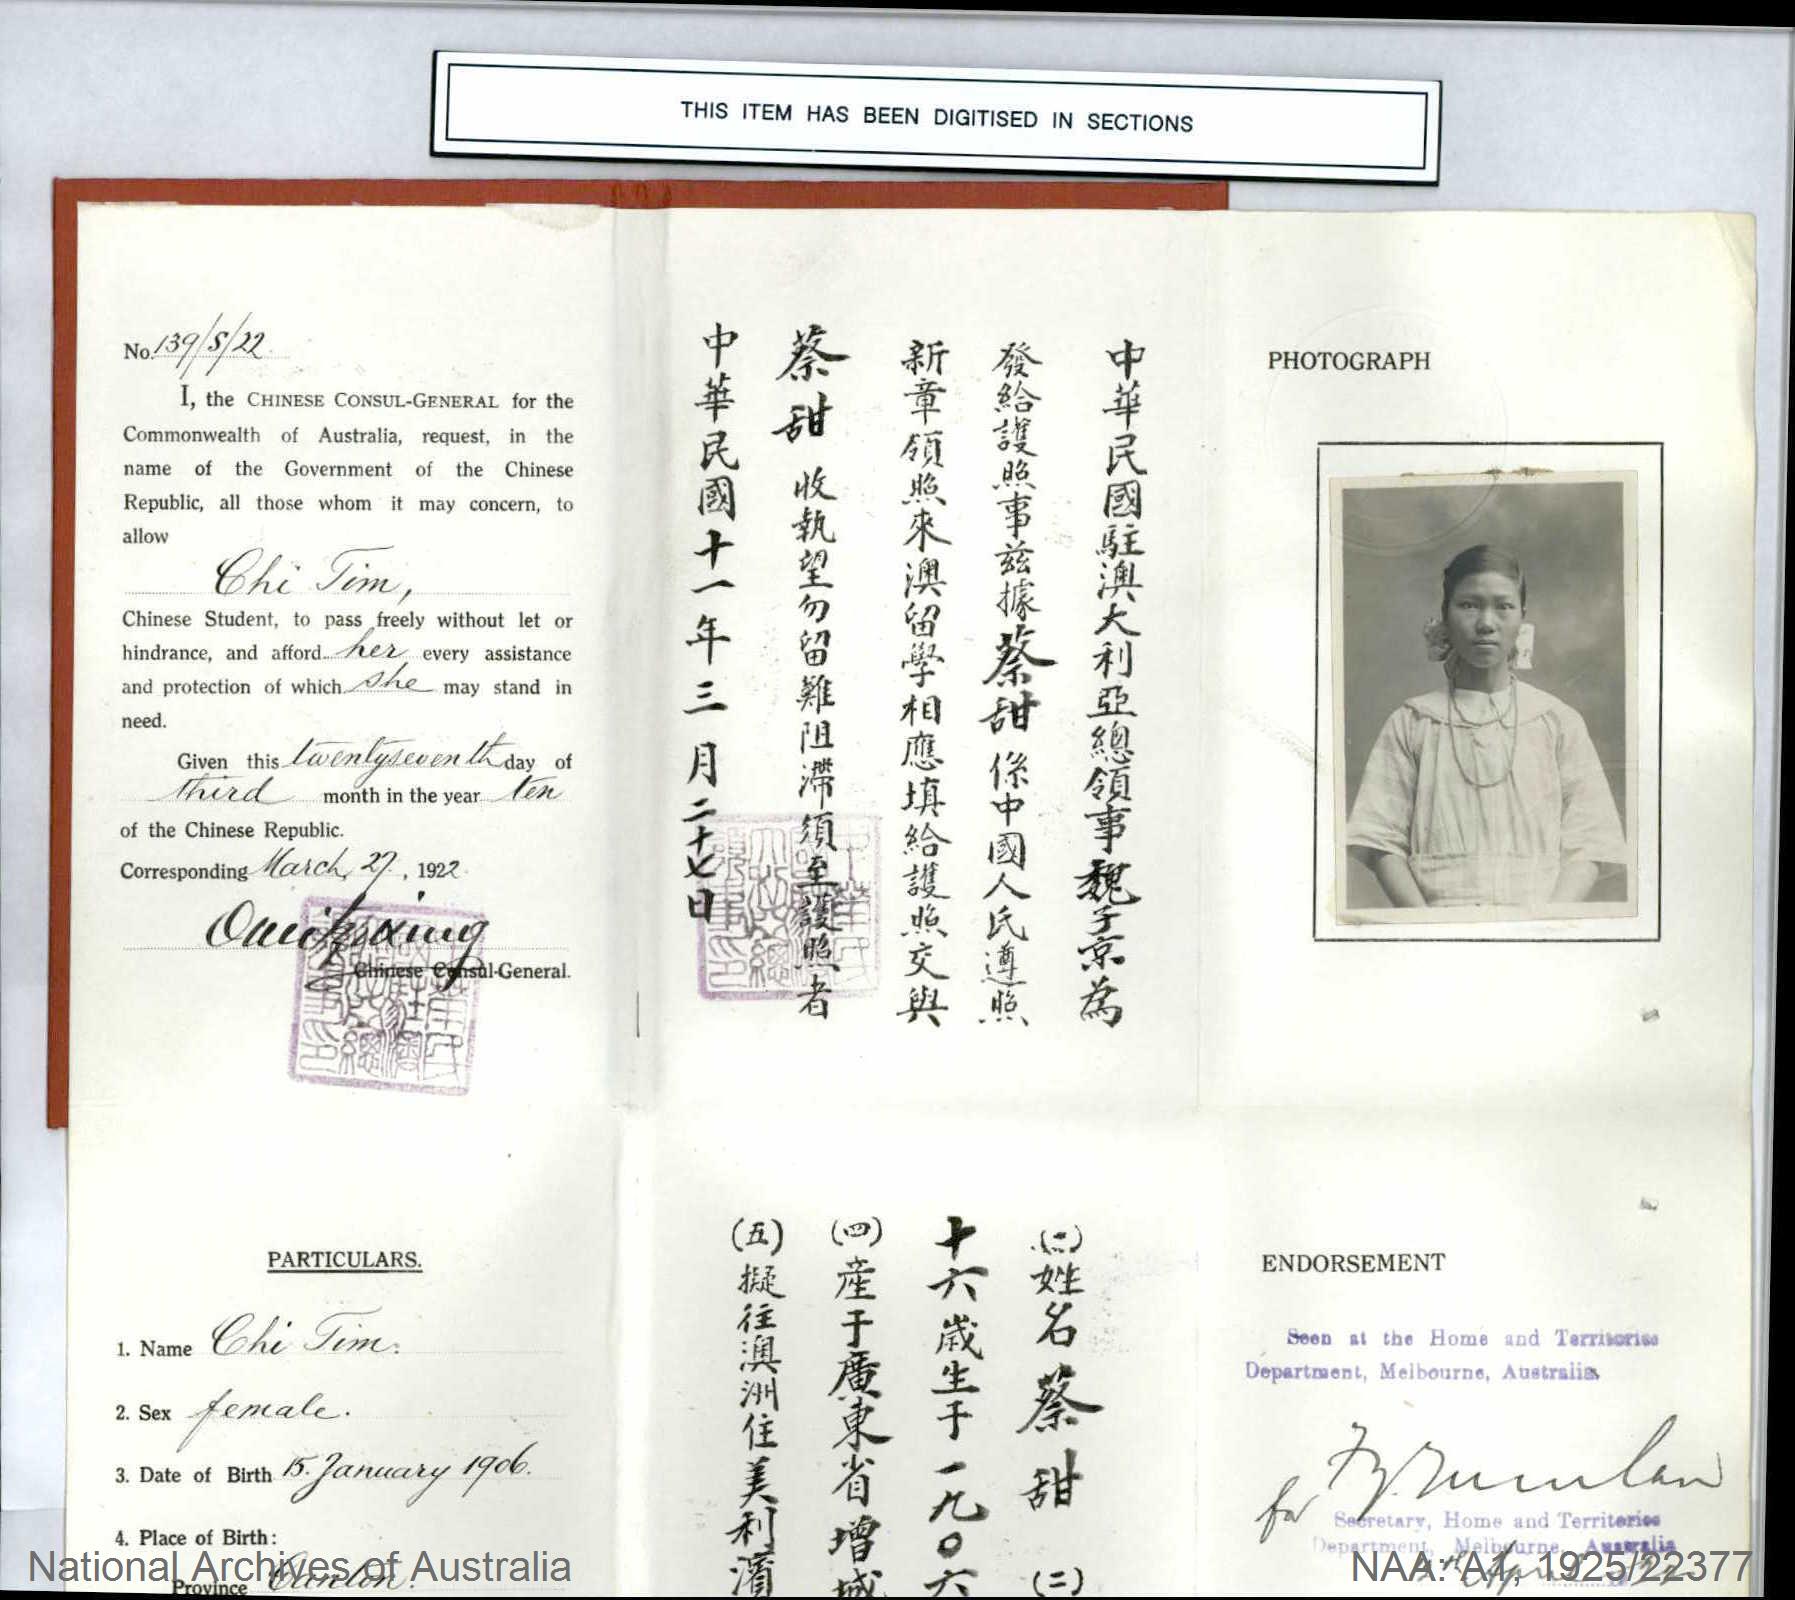 THIS ITEM HAS BEEN DIGITISED IN SECTIONS
No. 139/S/22
I, the CHINESE CONSUL-GENERAL for the
Commonwealth of Australia, request, in the
name of the Government of the Chinese
Republic, all those whom it may concern, to
allow
Chi Tim,
Chinese Student, to pass freely without let or
hindrance, and afford her every assistance
and protection of which she may stand in
need.
Given this twentyseventh day of
third month in the year ten
of the Chinese Republic.
Corresponding March, 27, 1922.
Chinese Consul-General.
中華民國駐澳大利亞總領事魏子京為
發給護照事茲據蔡甜係中國人民遵照
新章領照來澳留學相應填給護照交與
蔡甜收執望勿留難阻滯須至護照者
中華民國十一年三月二十七日
PHOTOGRAPH
PARTICULARS.
1. Name Chi Tim.
2. Sex female.
3. Date of Birth 15. January 1906.
4. Place of Birth:
Province Canton.
姓名蔡甜(二)
十六歲生于一九〇六
(四)產于廣東省增城
(五)擬往澳洲住美利濱
ENDORSEMENT
Seen at the Home and Territories
Department, Melbourne, Australia.
for
Secretary, Home and Territories
Department, Melbourne, Australia
National Archives of Australia
NAA: A1, 1925/22377